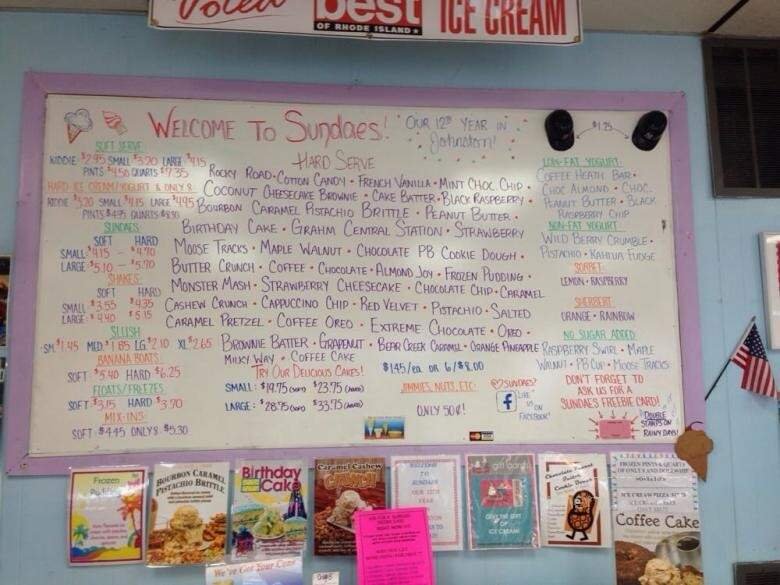 Voted best ICE CREAM
OF RHODE ISLAND
WELCOME TO Sundaes!
OUR 12th YEAR IN
Johnston!
$1.25
SOFT SERVE
KIDDIE $2.95 SMALL $3.20 LARGE $4.15
PINTS $4.50 QUARTS $7.35
HARD ICE CREAM/YOGURT & ONLY 8
KIDDIE $3.20 SMALL $4.15 LARGE $4.95
PINTS $4.95 QUARTS $8.90
SUNDAES
SOFT HARD
SMALL $4.15 - $4.70
LARGE $5.10 - $5.70
SHAKES
SOFT HARD
SMALL $3.55 $4.35
LARGE $4.40 $5.15
SLUSH
SM. $1.45 MED $1.85 LG $2.10 XL $2.65
BANANA BOATS
SOFT $5.40 HARD $6.25
FLOATS/FREEZES
SOFT $3.15 HARD $3.70
MIX-INS
SOFT $4.45 ONLY 8 $5.30
HARD SERVE
ROCKY ROAD • COTTON CANDY • FRENCH VANILLA • MINT CHOC. CHIP
COCONUT CHEESECAKE BROWNIE • CAKE BATTER • BLACK RASPBERRY •
BOURBON CARAMEL PISTACHIO BRITTLE • PEANUT BUTTER •
BIRTHDAY CAKE • GRAHM CENTRAL STATION • STRAWBERRY
MOOSE TRACKS • MAPLE WALNUT • CHOCOLATE PB COOKIE DOUGH •
BUTTER CRUNCH • COFFEE • CHOCOLATE • ALMOND JOY • FROZEN PUDDING •
MONSTER MASH • STRAWBERRY CHEESECAKE • CHOCOLATE CHIP • CARAMEL
CASHEW CRUNCH • CAPPUCCINO CHIP • RED VELVET • PISTACHIO • SALTED
CARAMEL PRETZEL • COFFEE OREO • EXTREME CHOCOLATE • OREO •
BROWNIE BATTER • GRAPENUT • BEAR CREEK CARAMEL • ORANGE PINEAPPLE
MILKY WAY • COFFEE CAKE
TRY OUR DELICIOUS CAKES! $1.45/ea. OR 6/$8.00
SMALL: $19.75 (SOFT) $23.75 (HARD)
LARGE: $28.75 (SOFT) $33.75 (HARD)
JIMMIES, NUTS, ETC:
ONLY 50¢!
LOW-FAT YOGURT
COFFEE HEATH BAR •
CHOC ALMOND • CHOC.
PEANUT BUTTER • BLACK
RASPBERRY CHIP
NON-FAT YOGURT
WILD BERRY CRUMBLE •
PISTACHIO • KAHLUA FUDGE
SORBET
LEMON • RASPBERRY
SHERBERT
ORANGE • RAINBOW
NO SUGAR ADDED
RASPBERRY SWIRL • MAPLE
WALNUT • PB CUP • MOOSE TRACKS
SUNDAES?
f LIKE
US
ON
FACEBOOK
DON'T FORGET TO
ASK US FOR A
SUNDAES FREEBIE CARD!
DOUBLE
STAMPS ON
RAINY DAYS!
Frozen
Pudding
BOURBON CARAMEL
PISTACHIO BRITTLE
Birthday
Cake
Caramel Cashew
CRUNCH
WELCOME
TO
SUNDAES
OUR 12TH
YEAR
gift cards
GIVE THE GIFT
OF
ICE CREAM
Chocolate Peanut
Butter
Cookie Dough
FROZEN PINTS & QUARTS
Coffee Cake
We've Got Your Cone